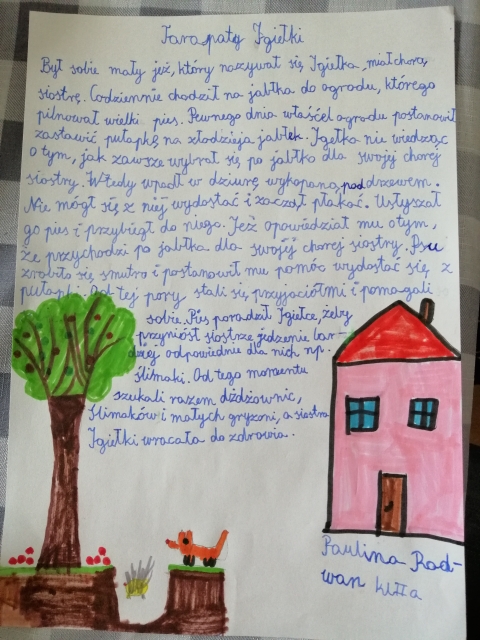 Tarapaty Igiełki
Był sobie mały jeż, który nazywał się Igiełka, miał chorą
siostrę. Codziennie chodził na jabłka do ogrodu, którego
pilnował wielki pies. Pewnego dnia właścicel ogrodu postanowił
zastawić pułapkę na złodzieja jabłek. Igełka nie wiedząc
o tym, jak zawsze wybrał się po jabłko dla swojej chorej
siostry. Wtedy wpadł w dziurę wykopaną pod drzewem.
Nie mógł się z niej wydostać i zaczął płakać. Usłyszał
go pies i przybiegł do niego. Jeż opowiedział mu o tym,
że przychodzi po jabłka dla swojej chorej siostry. Psu
zrobiło się smutno i postanowił mu pomóc wydostać się z
pułapki. Od tej pory stali się przyjaciółmi i pomagali
sobie. Pies poradził Igiełce, żeby
przyniósł siostrze jedzenie bar-
dziej odpowiednie dla nich np.
ślimaki. Od tego momentu
szukali razem dżdżownic,
ślimaków i małych gryzoni, a siostra
Igiełki wracała do zdrowia.
Paulina Rad-
wan kl II a